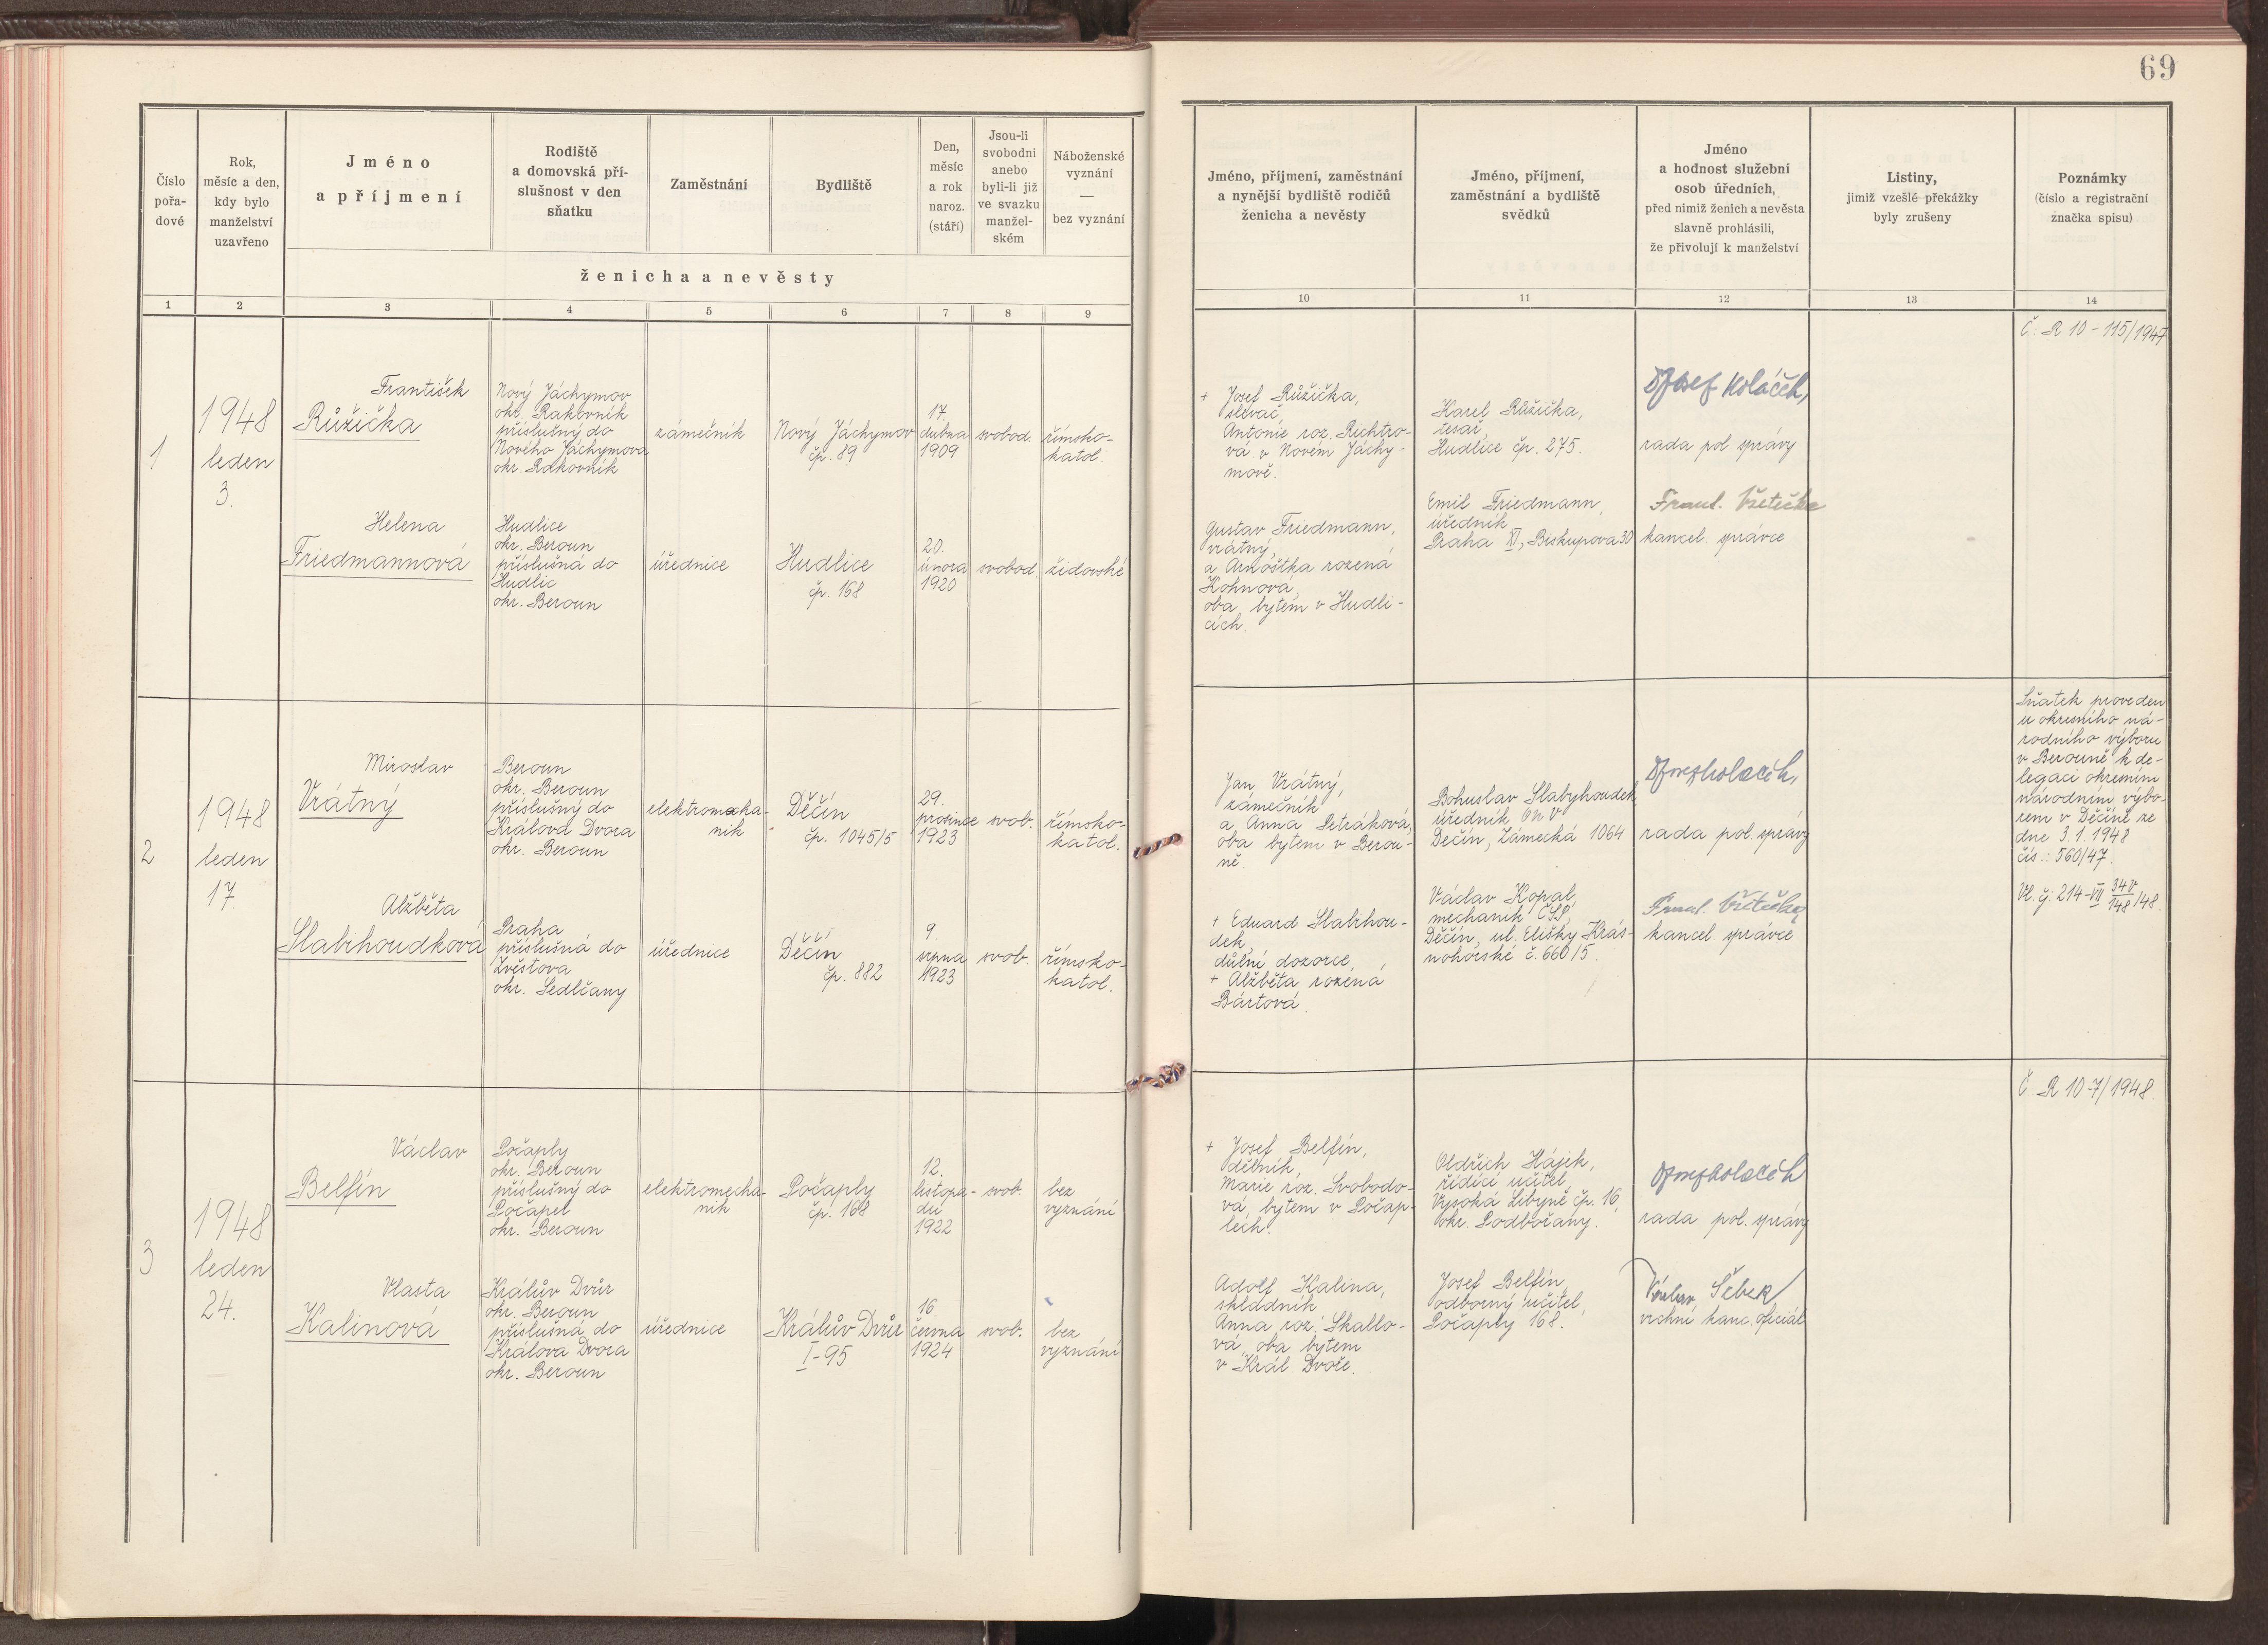 69
Číslo
pořa-
dové
Rok,
měsíc a den,
kdy bylo
manželství
uzavřeno
Jméno
a příjmení
Rodiště
a domovská pří-
slušnost v den
sňatku
Zaměstnání
Bydliště
Den,
měsíc
a rok
naroz.
(stáří)
Jsou-li
svobodni
anebo
byli-li již
ve svazku
manžel-
ském
Náboženské
vyznání
—
bez vyznání
ženicha a nevěsty
Jméno, příjmení, zaměstnání
a nynější bydliště rodičů
ženicha a nevěsty
Jméno, příjmení,
zaměstnání a bydliště
svědků
Jméno
a hodnost služební
osob úředních,
před nimiž ženich a nevěsta
slavně prohlásili,
že přivolují k manželství
Listiny,
jimiž vzešlé překážky
byly zrušeny
Poznámky
(číslo a registrační
značka spisu)
1 2 3 4 5 6 7 8 9 10 11 12 13 14
1
1948
leden
3.
František
Růžička
Nový Jáchymov
okr. Rakovník
příslušný do
Nového Jáchymova
okr. Rakovník
zámečník
Nový Jáchymov
čp. 89
17.
dubna
1909
svobod.
římsko-
katol.
+ Josef Růžička,
slévač
Antonie roz. Richtro-
vá v Novém Jáchy-
mově.
Karel Růžička,
tesař,
Hudlice čp. 275.
Josef Koláček,
rada pol. správy
Č: R 10-115/1947
Helena
Friedmannová
Hudlice
okr. Beroun
příslušná do
Hudlic
okr. Beroun
úřednice
Hudlice
čp. 168
20.
února
1920
svobod.
židovské
Gustav Friedmann,
vrátný,
a Arnoštka rozená
Kohnová,
oba bytem v Hudli-
cích.
Emil Friedmann,
úředník
Praha XI, Biskupova 30
Frant. Všetečka
kancel. správce
2
1948
leden
17.
Miroslav
Vrátný
Beroun
okr. Beroun
příslušný do
Králova Dvora
okr. Beroun
elektromecha-
nik
Děčín
čp. 1045/5
29.
prosince
1923
svob.
římsko-
katol.
Jan Vrátný,
zámečník
a Anna Petráková,
oba bytem v Berou-
ně.
Bohuslav Slabyhoudek,
úředník ONV
Děčín, Zámecká 1064
Josef Koláček,
rada pol. správy
Sňatek proveden
u okresního ná-
rodního výboru
v Berouně k de-
legaci okresním
národním výbo-
rem v Děčíně ze
dne 3.1.1948
čís.: 560/47.
Alžběta
Slabihoudková
Praha
příslušná do
Zvěstova
okr. Sedlčany
úřednice
Děčín
čp. 882
9.
srpna
1923
svob.
římsko-
katol.
+ Eduard Slabihou-
dek,
důlní dozorce,
+ Alžběta rozená
Bártová.
Václav Kopal,
mechanik ČSP,
Děčín, ul. Elišky Krás-
nohorské č. 660/5.
Frant. Všetečka
kancel. správce
3
1948
leden
24.
Václav
Belfín
Počaply
okr. Beroun
příslušný do
Počapel
okr. Beroun
elektromecha-
nik
Počaply
čp. 168
12.
listopa-
du
1922
svob.
bez
vyznání
+ Josef Belfín,
dělník,
Marie roz. Svobodo-
vá, bytem v Počap-
lech.
Oldřich Hájek,
řídící učitel,
Vysoká Libyně čp. 16,
okr. Podbořany.
Josef Koláček
rada pol. správy
Č. R 10-7/1948.
Vlasta
Kalinová
Králův Dvůr
okr. Beroun
příslušná do
Králova Dvora
okr. Beroun
úřednice
Králův Dvůr
I-95
16
června
1924
svob.
bez
vyznání
Adolf Kalina,
skladník
Anna roz. Skallo-
vá, oba bytem
v Král Dvoře.
Josef Belfín,
odborný učitel,
Počaply 168.
Václav Šebek
vrchní kanc. oficiál